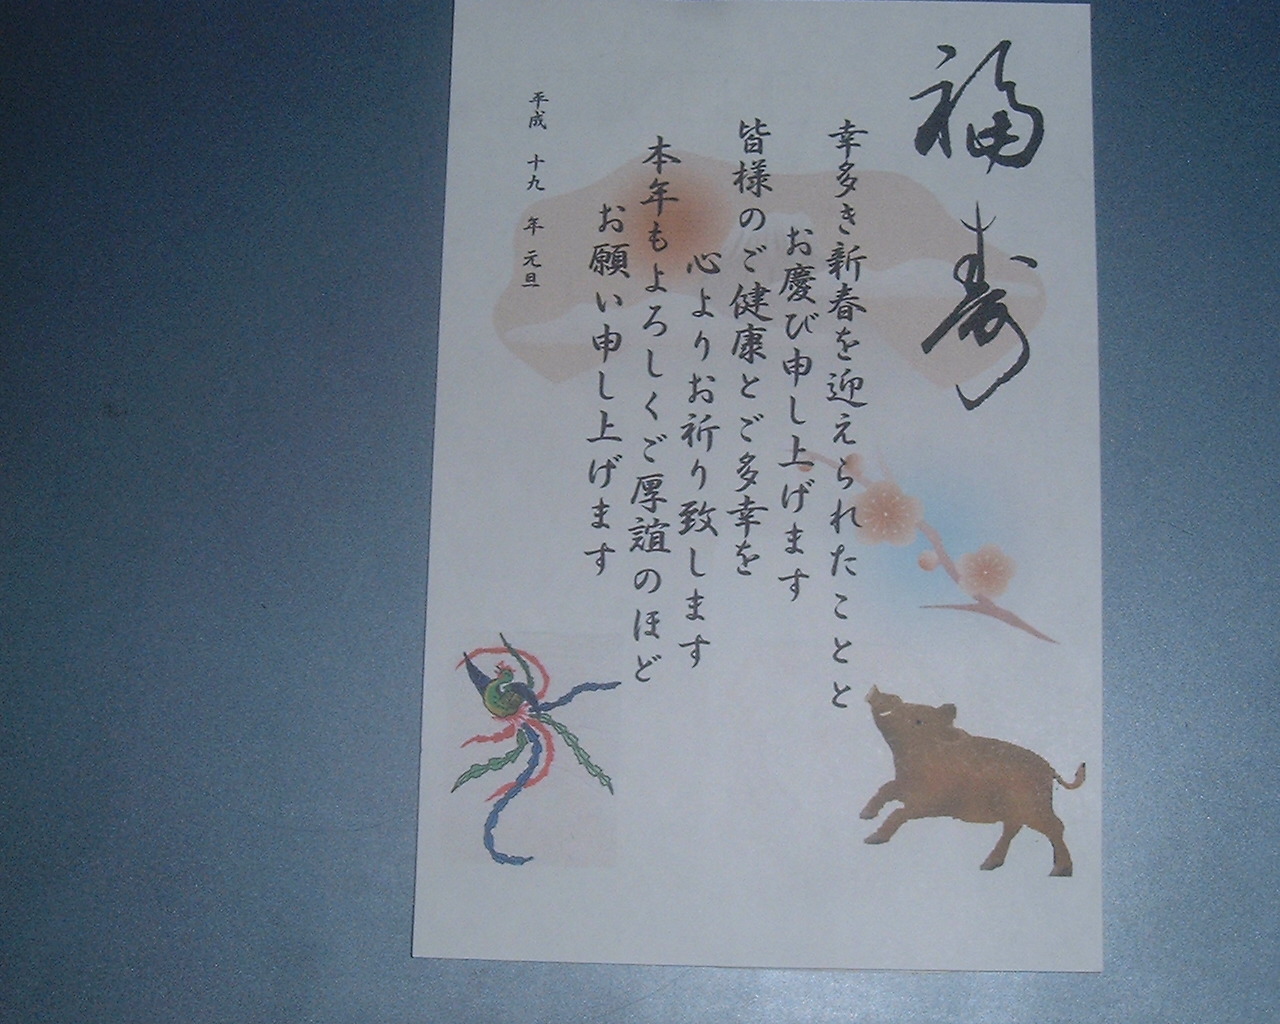 福寿
幸多き新春を迎えられたことと
お慶び申し上げます
皆様のご健康とご多幸を
心よりお祈り致します
本年もよろしくご厚誼のほど
お願い申し上げます
平成 十九 年 元旦